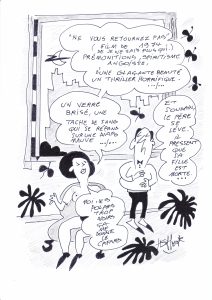 "NE VOUS RETOURNEZ PAS"
(FILM DE 1974
DE JE NE SAIS PLUS QUI)
PRÉMONITIONS, SPIRITISME
ANGOISSE,
D'UNE ÉLÉGANTE BEAUTÉ
UN THRILLER HORRIFIQUE...
UN VERRE
BRISÉ, UNE
TACHE DE SANG
QUI SE RÉPAND
SUR UNE
ET...
SOUDAIN,
LE PÈRE
SE
LÈVE.
IL
PRESSENT
QUE SA
FILLE
EST
MORTE...
MOI, LES
POLARS
TROP
NOIRS
ME
DONNENT
LE
CAFARD